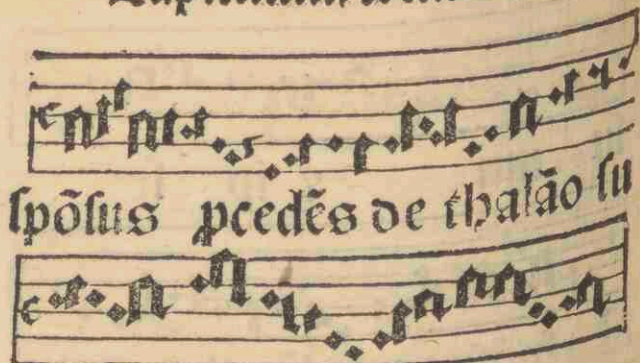 ſpõſus ꝓcedẽs de thalão ſu